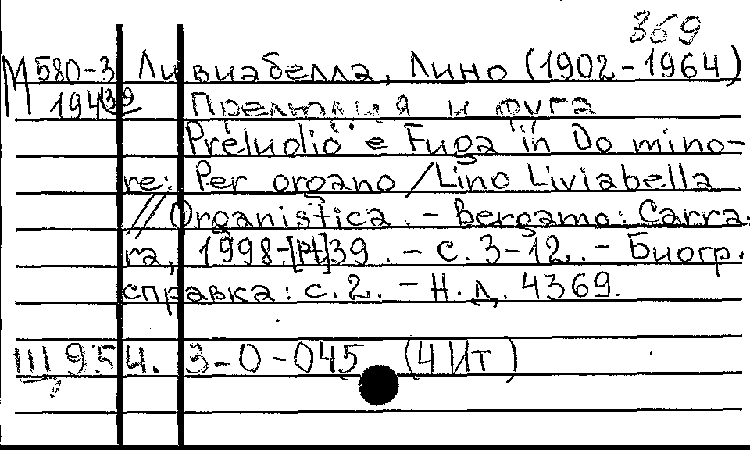 369
М 580-3 Ливиабелла, Лино (1902-1964)
19439 Прелюдия и фуга
Preludio e Fuga in Do mino-
re: Per organo / Lino Liviabella
// Organistica. - Bergamo: Carra-
ra, 1998-[Pt]39. - С. 3-12. - Биогр.
справка: с. 2. - Н. д. 4369.
III 954. 3-0-045 (4 Ит)